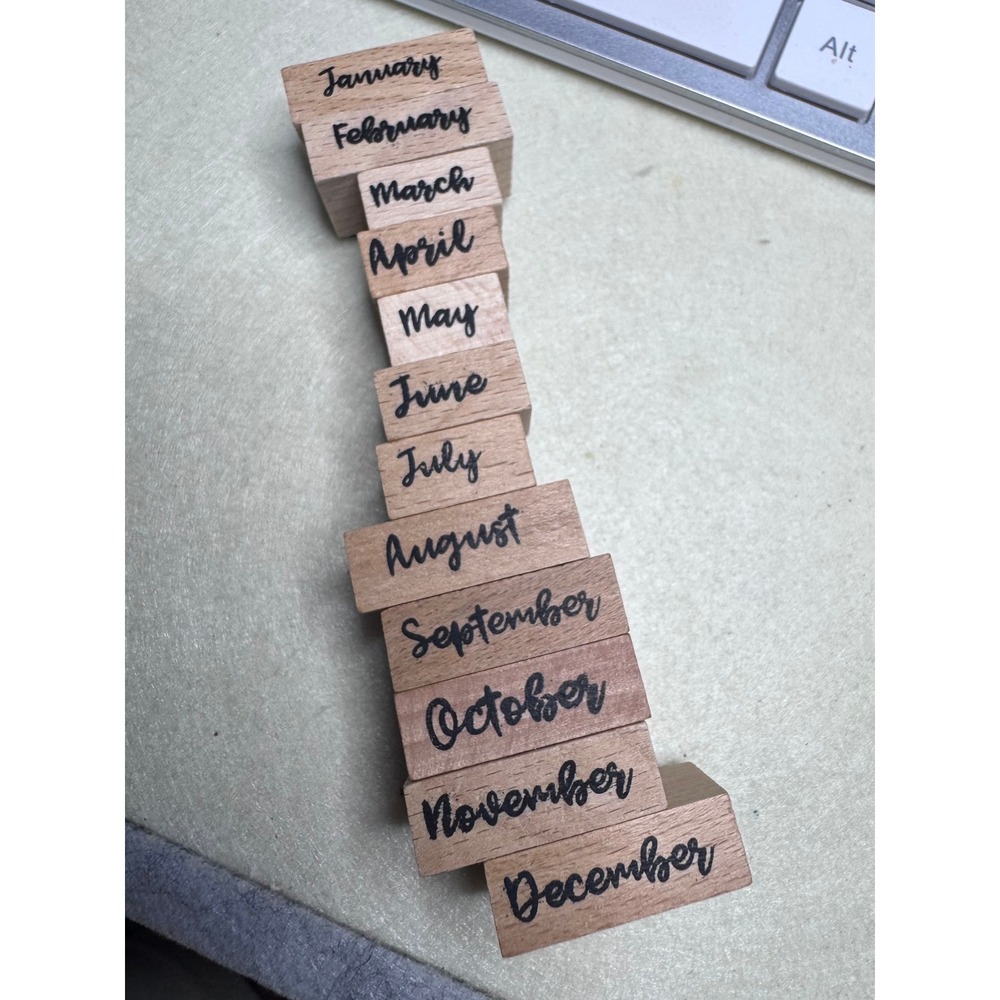 Alt
January
February
March
April
May
June
July
August
September
October
November
December